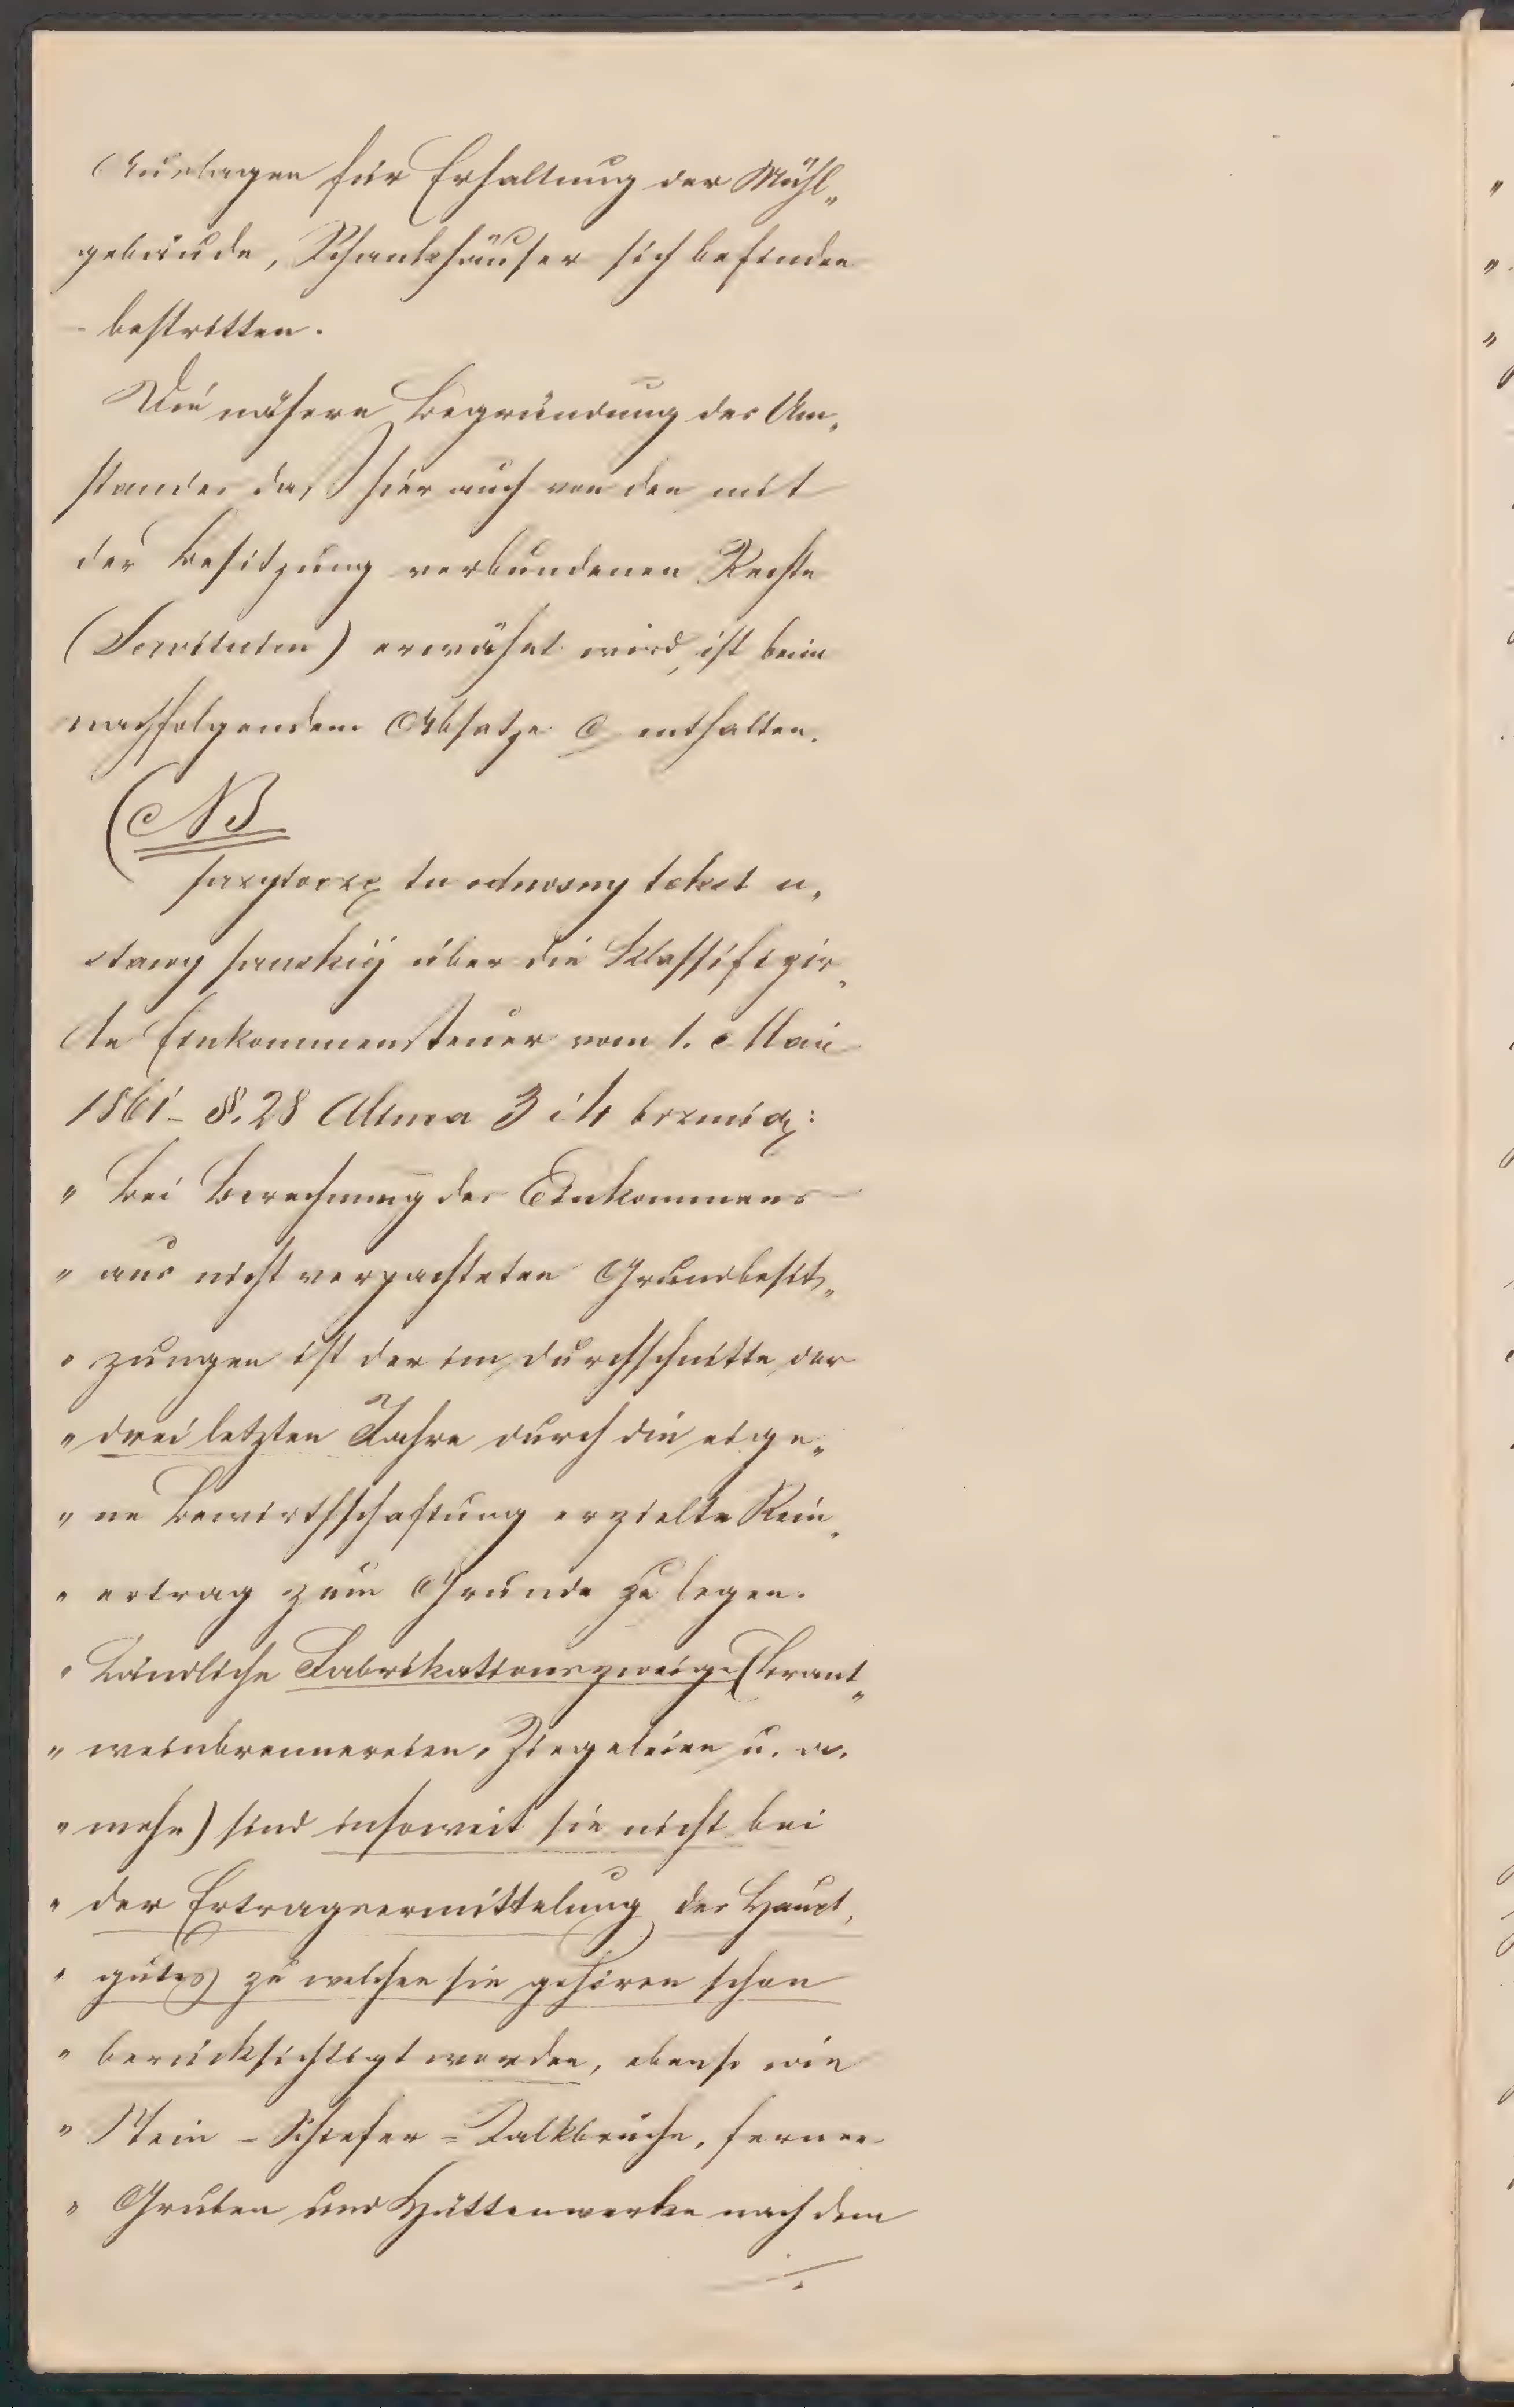 Auslagen für Erhaltung der Mühl„
gebäude, Schankhäuser sich befinden
- bestritten.
Die nähere Begründung des Um„
standes daß hier auch von den mit
der Besitzung verbundenen Rechte
(Servituten) erwähnt wird, ist beim
nachfolgendem Absatze c enthalten.
NB
przytoczę tu odnośny tekst u„
stawy pruskiéj über die klassifizir„
te Einkommensteuer vom 1. Mai
1851 - §. 28 Alinea 3 i 4 brzmią:
„ Bei Berechnung des Einkommens
„ aus nicht verpachteten Grundbesit„
„ zungen ist der im Durchschnitte der
„ drei letzten Jahre durch die eige„
„ ne Bewirthschaftung erzielte Rein„
„ ertrag zum Grunde zu legen.
„ Ländliche Fabrikationszweige (Brant„
„ weinbrennereien, Ziegeleien u. a.
„ mehr) sind insoweit sie nicht bei
„ der Ertragsermittelung des Haupt„
„ gutes zu welchen sie gehören schon
„ berücksichtigt worden, ebenso wie
„ Stein - Schiefer = Kalkbrüche, ferner
„ Gruben und Hüttenwerke nach dem
./.